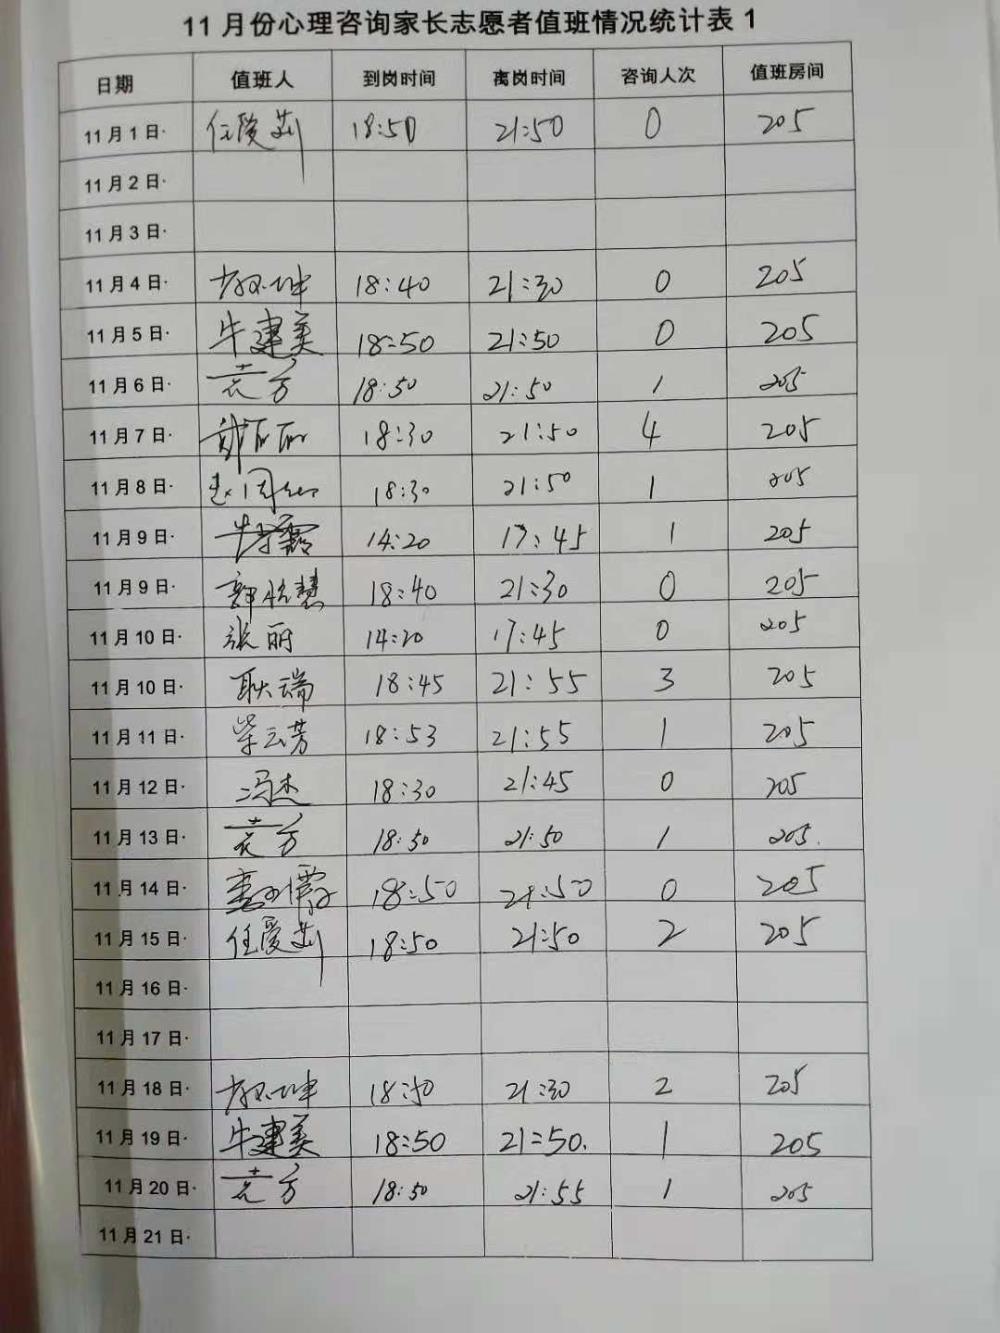 11 月份心理咨询家长志愿者值班情况统计表 1
日期 值班人 到岗时间 离岗时间 咨询人次 值班房间
11 月 1 日· 任爱莉 18:50 21:50 0 205
11 月 2 日·
11 月 3 日·
11 月 4 日· 18:40 21:30 0 205
11 月 5 日· 牛建美 18:50 21:50 0 205
11 月 6 日· 袁方 18:50 21:50 1 205
11 月 7 日· 18:30 21:50 4 205
11 月 8 日· 18:30 21:50 1 205
11 月 9 日· 14:20 17:45 1 205
11 月 9 日· 18:40 21:30 0 205
11 月 10 日· 张丽 14:20 17:45 0 205
11 月 10 日· 耿瑞 18:45 21:55 3 205
11 月 11 日· 柴云芳 18:53 21:55 1 205
11 月 12 日· 冯杰 18:30 21:45 0 205
11 月 13 日· 袁方 18:50 21:50 1 205
11 月 14 日· 18:50 21:50 0 205
11 月 15 日· 任爱莉 18:50 21:50 2 205
11 月 16 日·
11 月 17 日·
11 月 18 日· 18:50 21:30 2 205
11 月 19 日· 牛建美 18:50 21:50. 1 205
11 月 20 日· 袁方 18:50 21:55 1 205
11 月 21 日·